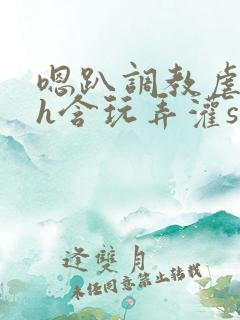 嗯趴調教虐
h含玩弄灌s
逢雙月
未经同意禁止转载